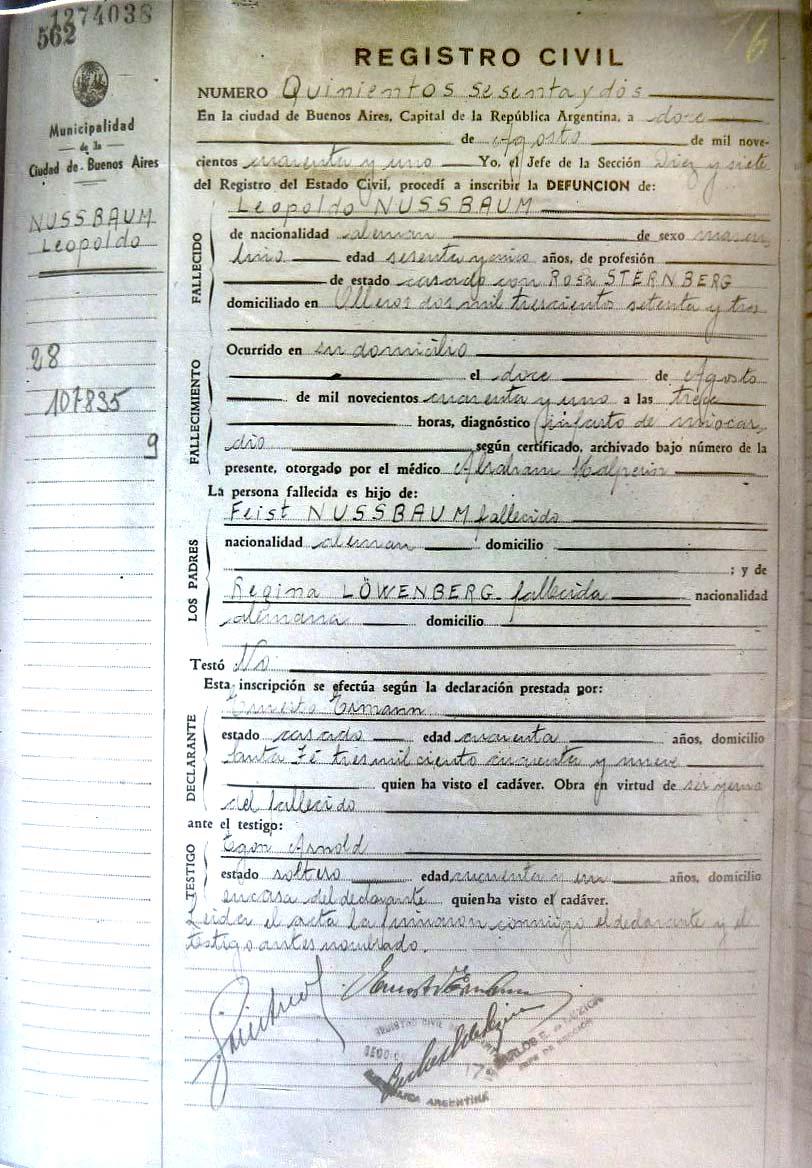 1274038
562
16
Municipalidad
de la
Ciudad de Buenos Aires
NUSSBAUM
Leopoldo
28
107835
9
REGISTRO CIVIL
NUMERO Quinientos sesenta y dos
En la ciudad de Buenos Aires, Capital de la República Argentina, a doce
de Agosto de mil nove-
cientos cuarenta y uno Yo, el Jefe de la Sección Diez y siete
del Registro del Estado Civil, procedí a inscribir la DEFUNCION de:
FALLECIDO
Leopoldo NUSSBAUM
de nacionalidad aleman de sexo mascu
lino edad sesenta y años, de profesión
de estado casado con Rosa STERNBERG
domiciliado en Olleros dos mil tresciento setenta y tres
FALLECIMIENTO
Ocurrido en su domicilio
el doce de Agosto
de mil novecientos cuarenta y uno a las trece
horas, diagnóstico infarto de miocar
dio según certificado, archivado bajo número de la
presente, otorgado por el médico Abraham Halperin
La persona fallecida es hijo de:
LOS PADRES
Feist NUSSBAUM fallecido
nacionalidad aleman domicilio
; y de
Regina LÖWENBERG fallecida nacionalidad
alemana domicilio
Testó No
Esta inscripción se efectúa según la declaración prestada por:
DECLARANTE
Ernesto Ermann
estado casado edad cuarenta años, domicilio
Santa Fé tres mil ciento cuarenta y nueve
quien ha visto el cadáver. Obra en virtud de ser yerno
del fallecido
ante el testigo:
TESTIGO
Egon Arnold
estado soltero edad cuarenta y un años, domicilio
en casa del declarante quien ha visto el cadáver.
Leida el acta la firmaron conmigo el declarante y el
testigo antes nombrado.
REGISTRO CIVIL
CARLOS E.
JEFE DE SECCIÓN
REPUBLICA ARGENTINA